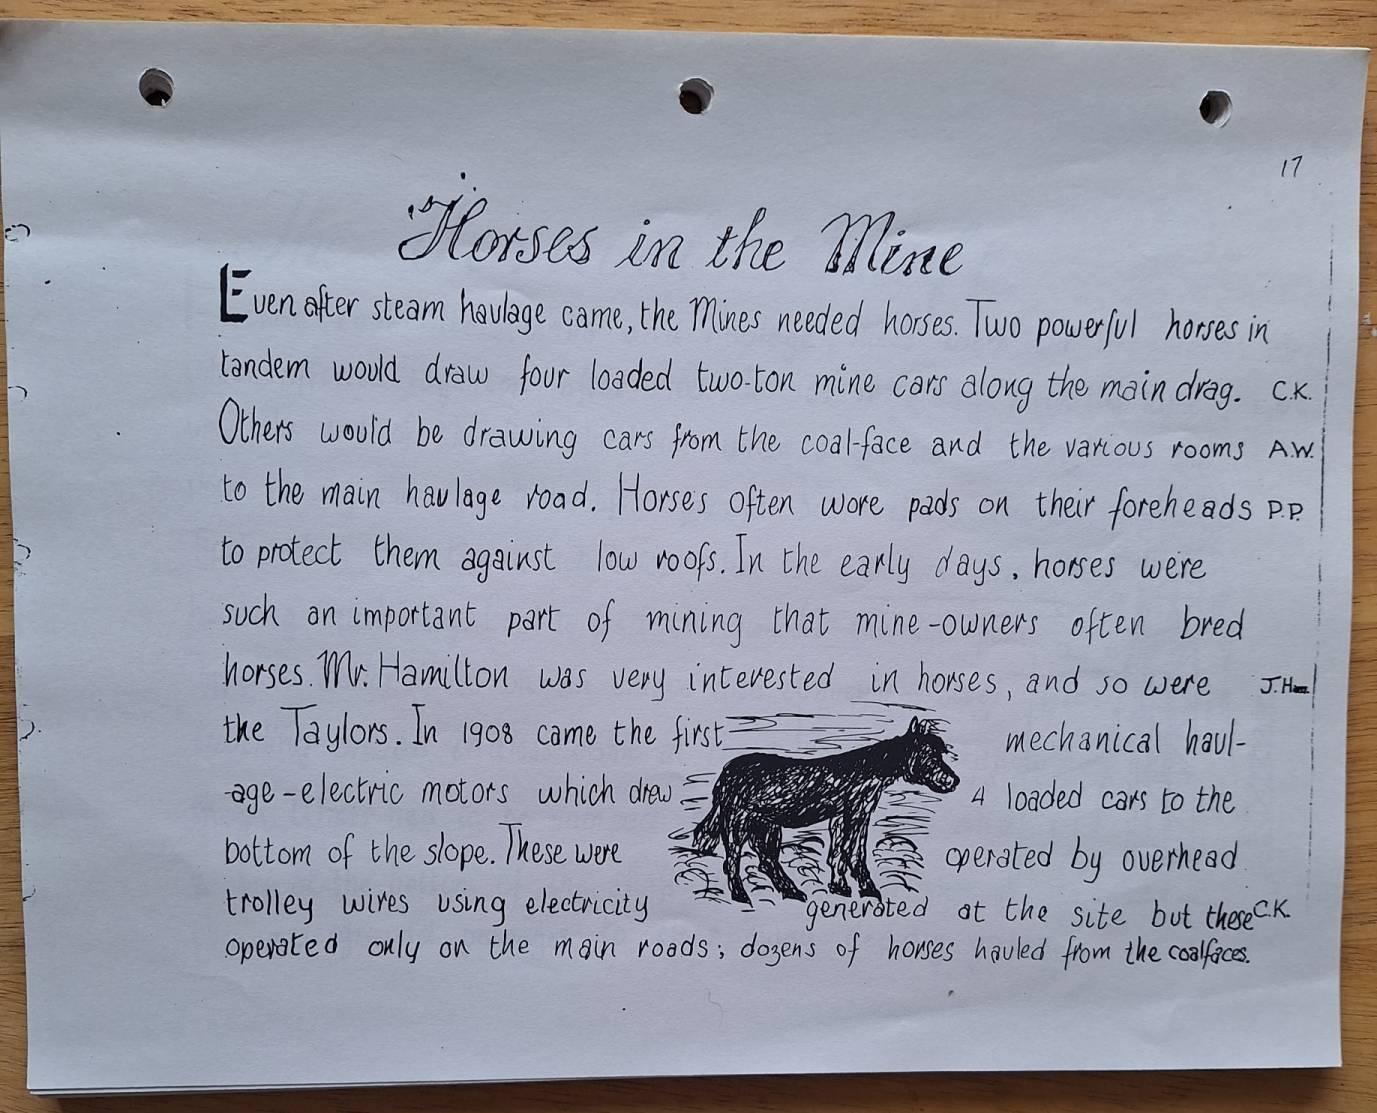 17
Horses in the Mine
Even after steam haulage came, the Mines needed horses. Two powerful horses in
tandem would draw four loaded two-ton mine cars along the main drag. C.K.
Others would be drawing cars from the coal-face and the various rooms A.W.
to the main haulage road. Horses often wore pads on their foreheads P.P.
to protect them against low roofs. In the early days, horses were
such an important part of mining that mine-owners often bred
horses. Mr. Hamilton was very interested in horses, and so were J.H.
the Taylors. In 1908 came the first mechanical haul-
-age-electric motors which drew 4 loaded cars to the
bottom of the slope. These were operated by overhead
trolley wires using electricity generated at the site but these C.K.
operated only on the main roads; dozens of horses hauled from the coalfaces.